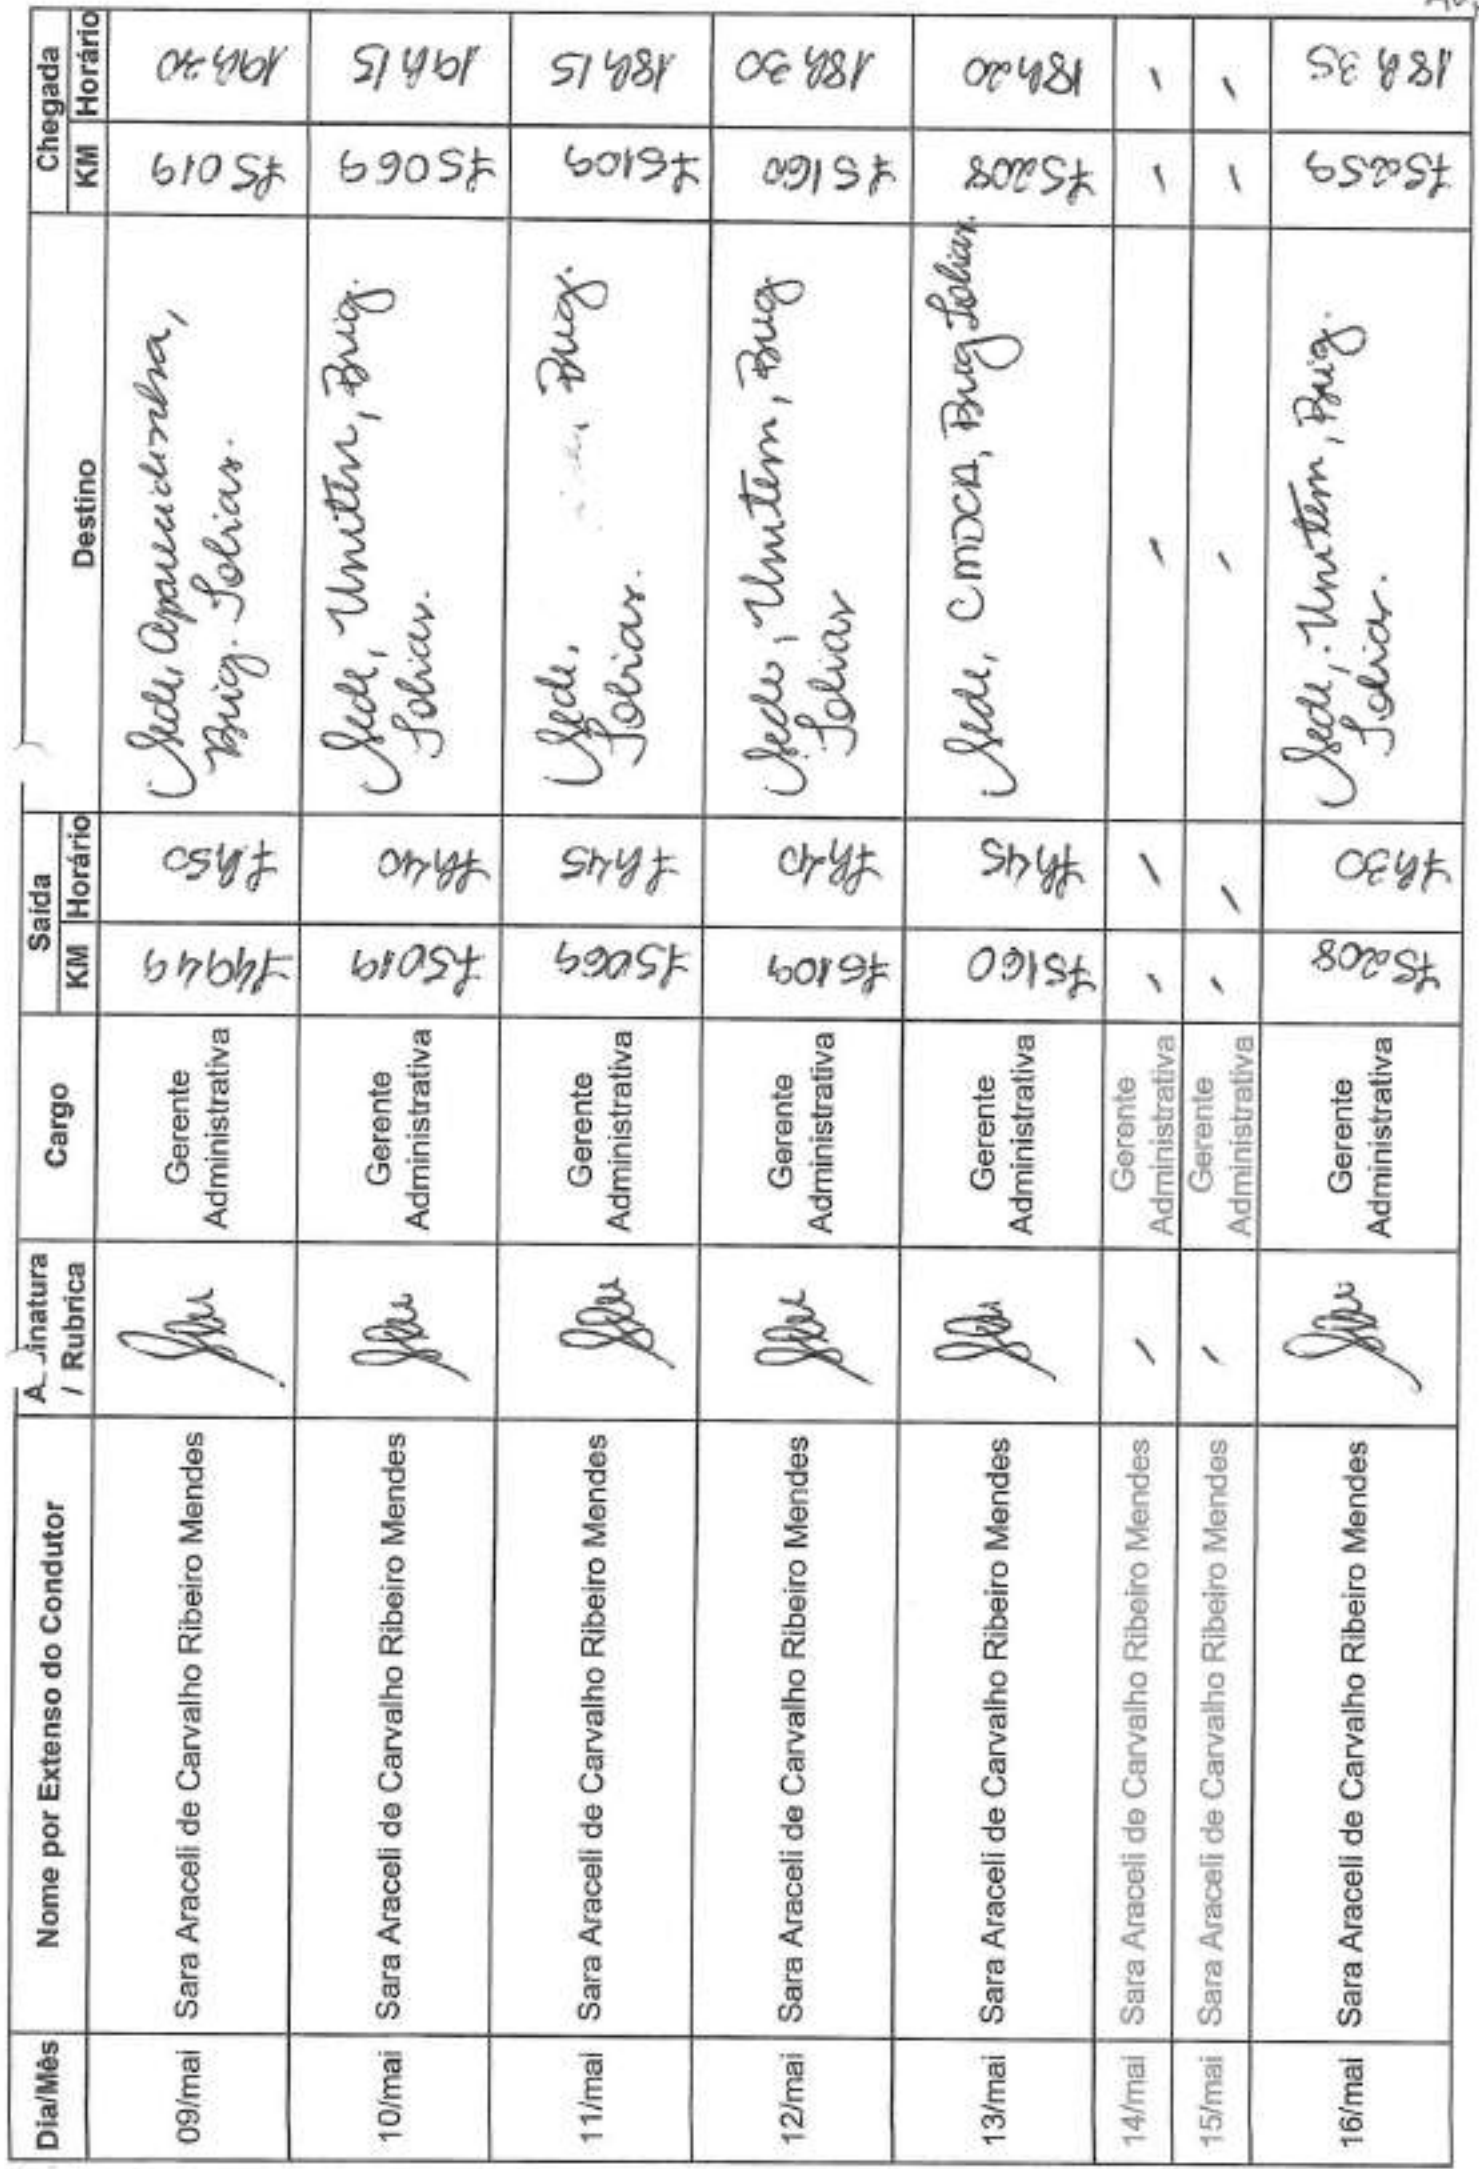 Dia/Mês Nome por Extenso do Condutor A inatura / Rubrica Cargo Saída KM Horário Destino Chegada KM Horário
09/mai Sara Araceli de Carvalho Ribeiro Mendes Gerente Administrativa 74949 7h50 Sede, Aparecidinha, 75019 19h20
Brig. Tobias.
10/mai Sara Araceli de Carvalho Ribeiro Mendes Gerente Administrativa 75019 7h40 Sede, Unitem, Brig. 75069 19h15
Tobias.
11/mai Sara Araceli de Carvalho Ribeiro Mendes Gerente Administrativa 75069 7h45 Sede, Brig. 75109 18h15
Tobias.
12/mai Sara Araceli de Carvalho Ribeiro Mendes Gerente Administrativa 75109 7h40 Sede, Unitem, Brig 75160 18h30
Tobias
13/mai Sara Araceli de Carvalho Ribeiro Mendes Gerente Administrativa 75160 7h45 Sede, CMDCA, Brig Tobias. 75208 18h20
14/mai Sara Araceli de Carvalho Ribeiro Mendes - Gerente Administrativa - - - - -
15/mai Sara Araceli de Carvalho Ribeiro Mendes - Gerente Administrativa - - - - -
16/mai Sara Araceli de Carvalho Ribeiro Mendes Gerente Administrativa 75208 7h30 Sede, Unitem, Brig. 75259 18h35
Tobias.